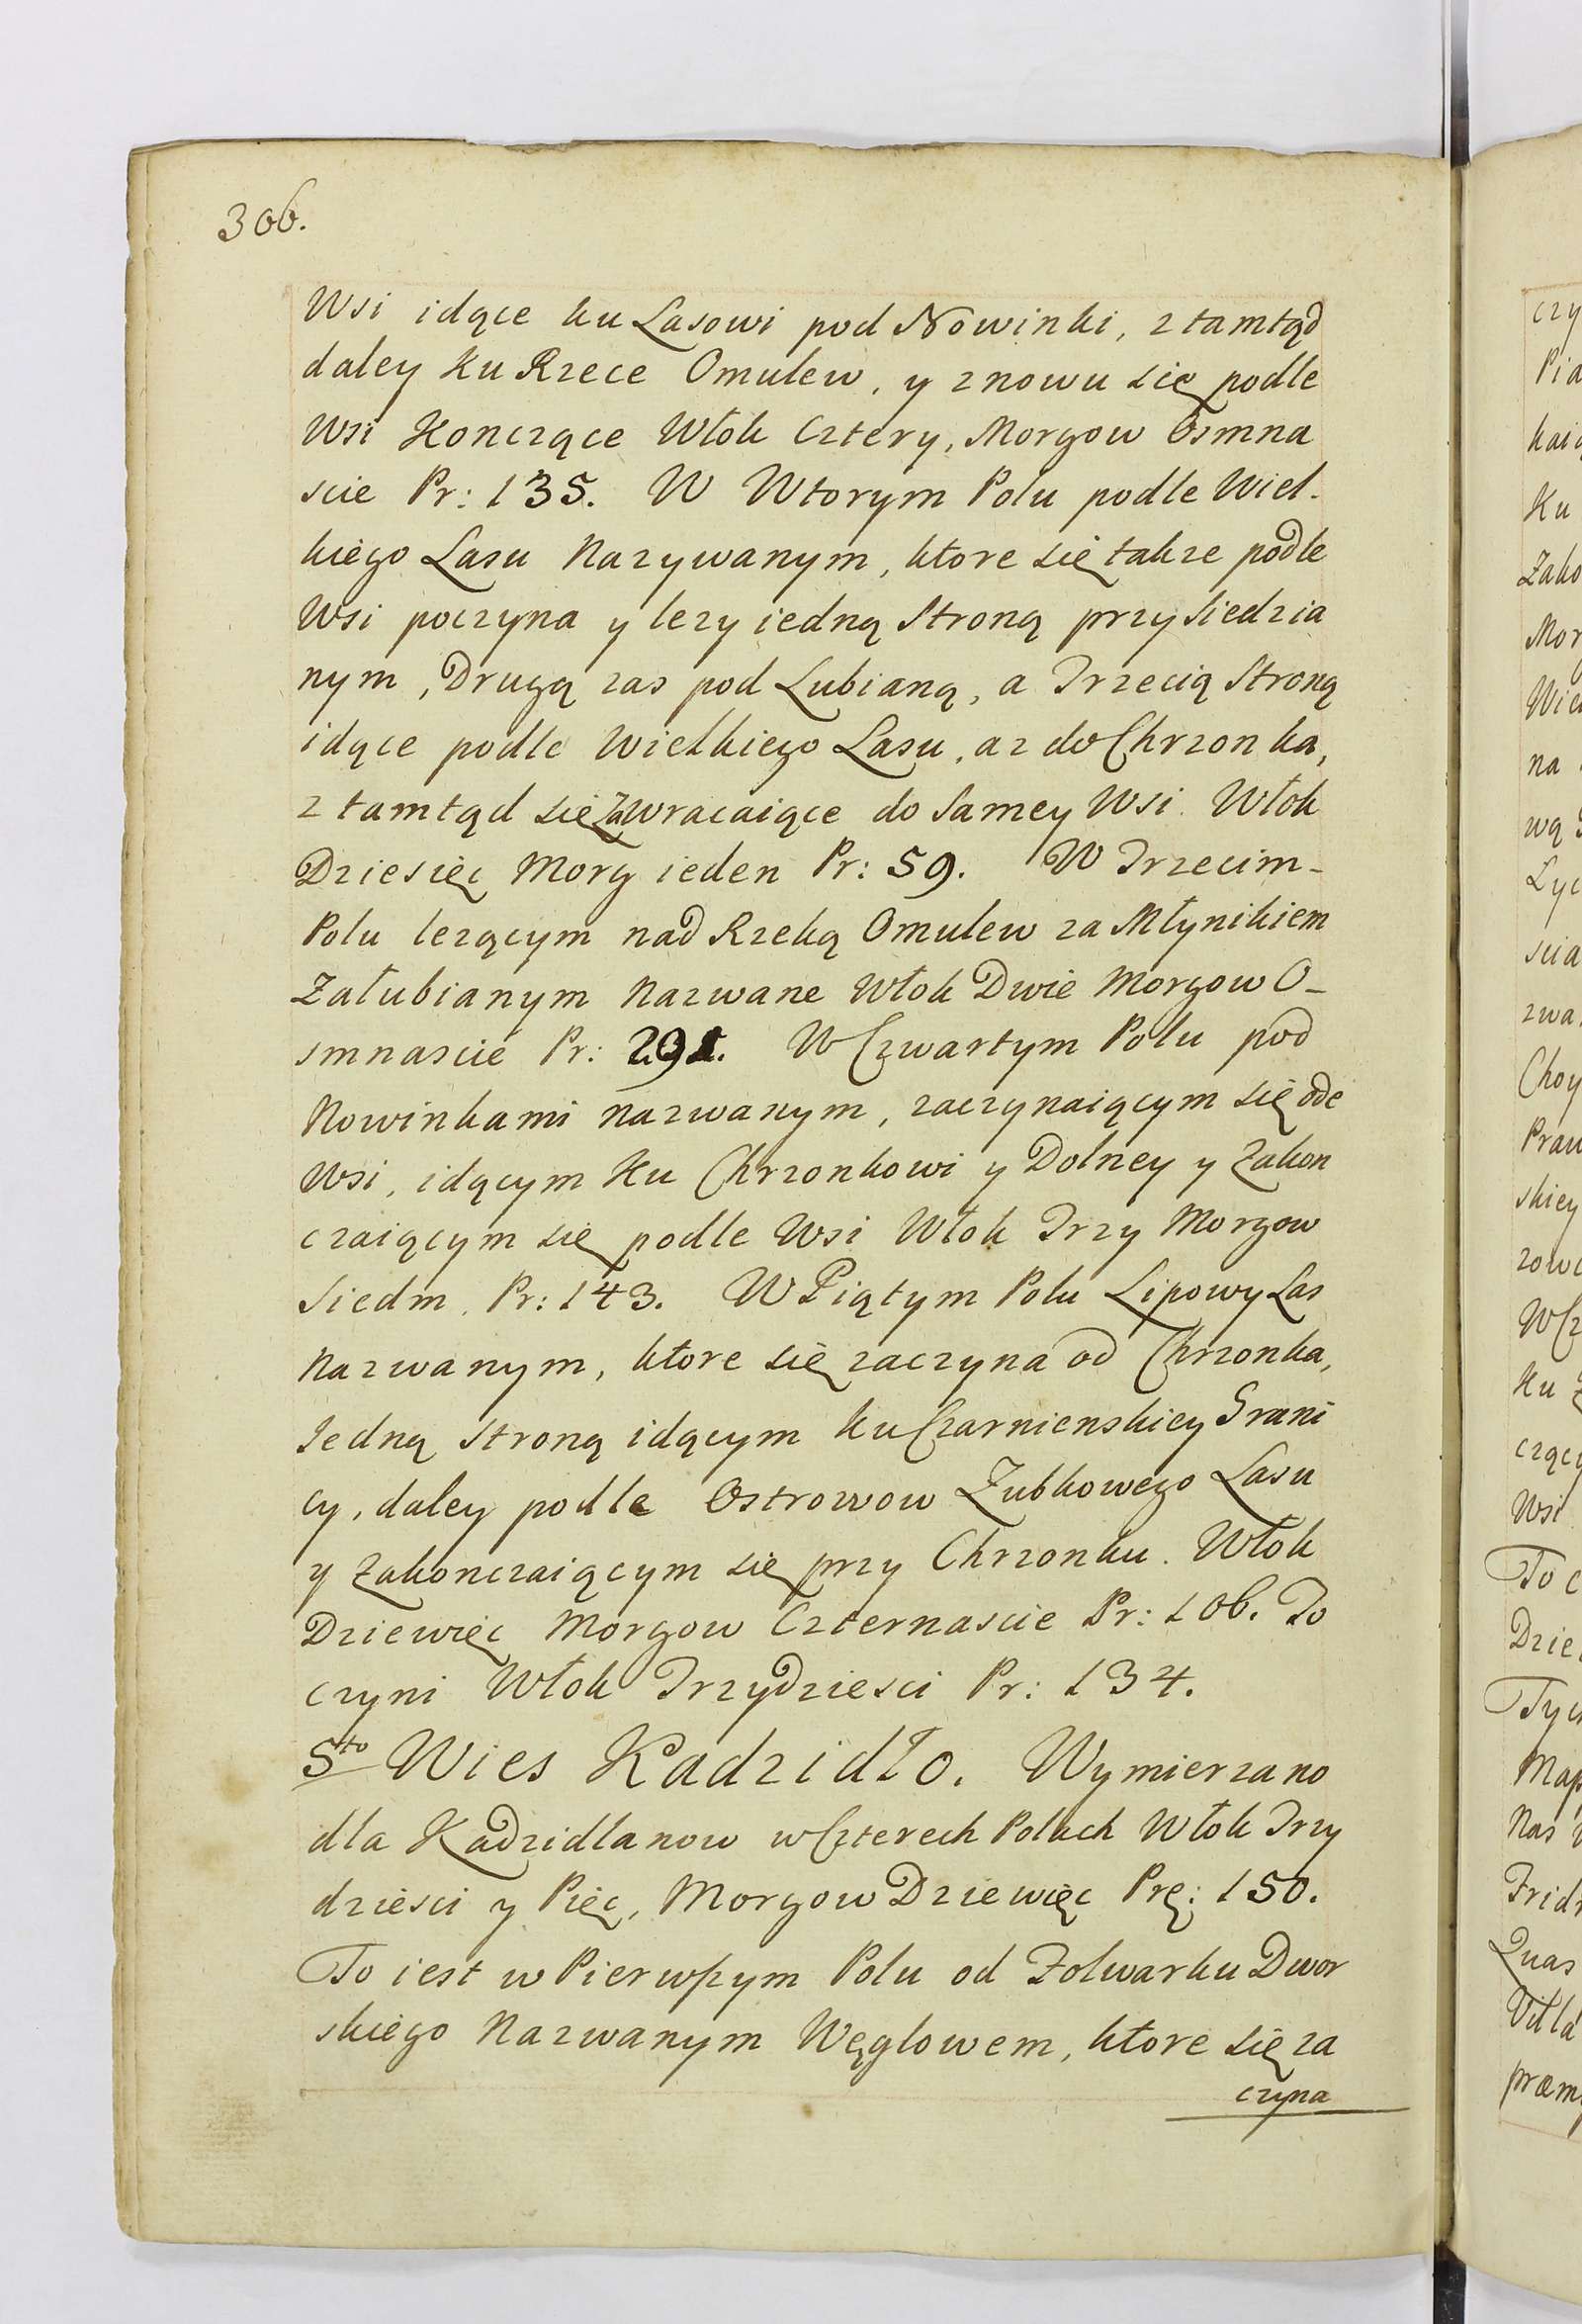 306.
Wsi idące ku Lasowi pod Nowinki, z tamtąd
daley Ku Rzece Omulew, y znowu się podle
Wsi Konczące Włok Cztery, Morgow Osmna
scie Pr: 135. W Wtorym Polu podle Wiel-
kiego Lasu Nazywanym, ktore się takze podle
Wsi poczyna y lezy iedną Stroną przy Siedzia
nym, Drugą zas pod Lubianą, a Trzecią Stroną
idące podle Wielkiego Lasu, az do Chrzonka,
z tamtąd się Zawracaiące do Samey Wsi. Włok
Dziesięc Morg ieden Pr: 59. W Trzecim-
Polu lezącym nad Rzeką Omulew za Młynikiem
Załubianym Nazwane Włok Dwie Morgow O-
smnascie Pr: 291. W Czwartym Polu pod
Nowinkami nazwanym, zaczynaiącym się ode
Wsi, idącym Ku Chrzonkowi y Dolney y Zakon
czaiącym się podle Wsi Włok Trzy Morgow
Siedm. Pr: 143. W Piątym Polu Lipowy Las
Nazwanym, ktore się zaczyna od Chrzonka,
Iedną Stroną idącym ku Czarnienskiey Grani
cy, daley podle Ostrowow Zubkowego Lasu
y Zakonczaiącym się przy Chrzonku. Włok
Dziewięc Morgow Czternascie Pr: 106. To
czyni Włok Trzydziesci Pr: 134.
5to Wies Kadzidło. Wymierzano
dla Kadzidlanow w Czterech Polach Włok Trzy
dziesci y Pięc, Morgow Dziewięc Prę: 150.
To iest w Pierwszym Polu od Folwarku Dwor
skiego Nazwanym Węglowem, ktore się za
czyna
czy
Pia
kaią
Ku
Zako
Mor
Wie
na
wą
Lyc
scia
zwa
Choy
Praw
skiey
zowe
W Cz
Ku
czący
Wsi
To c
Dzie
Tyc
Map
Nas
Frid
Quas
Villa
præm